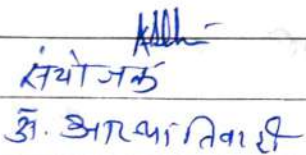 संयोजक
डॉ. आस्था तिवारी